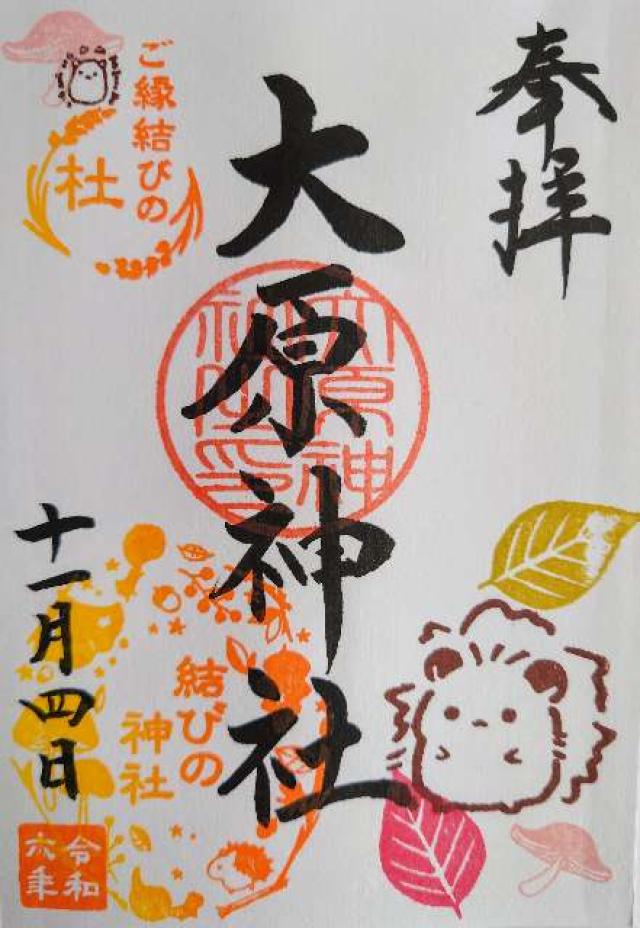 奉拝
ご縁結びの
杜
大原神社
大原神
社之印
結びの
神社
十一月四日
令和
六年